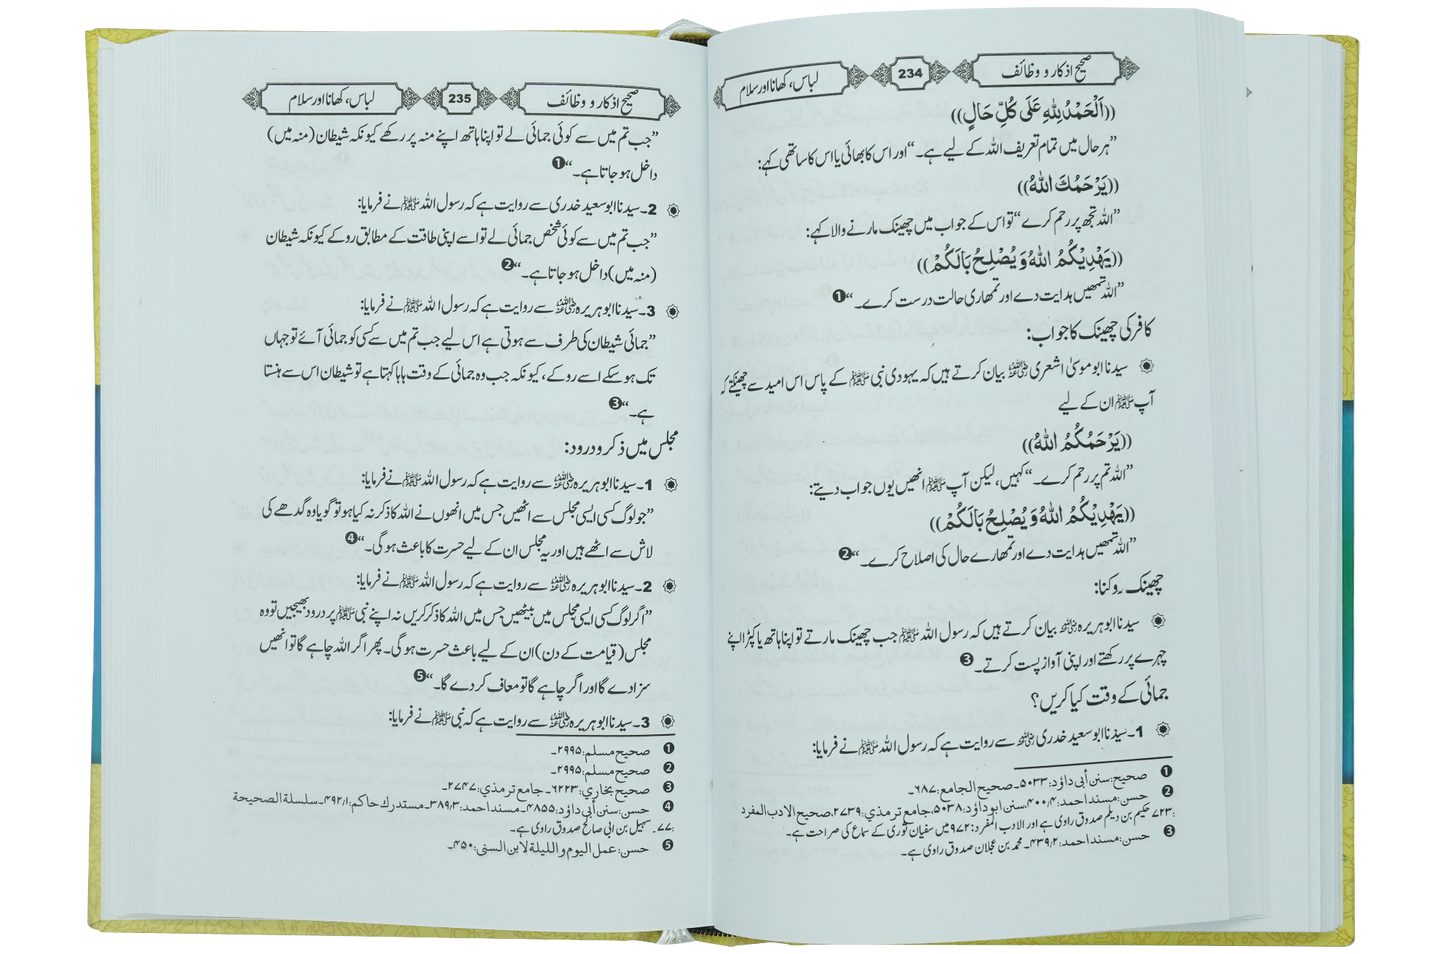 صحیح اذکار و وظائف 234 لباس، کھانا اور سلام
((اَلْحَمْدُ لِلّٰهِ عَلٰی كُلِّ حَالٍ))
”ہر حال میں تمام تعریف اللہ کے لیے ہے۔“ اور اس کا بھائی یا اس کا ساتھی کہے:
((يَرْحَمُكَ اللّٰهُ))
”اللہ تجھ پر رحم کرے“ تو اس کے جواب میں چھینک مارنے والا کہے:
((يَهْدِيْكُمُ اللّٰهُ وَ يُصْلِحُ بَالَكُمْ))
”اللہ تمھیں ہدایت دے اور تمھاری حالت درست کرے۔“ ❶
کافر کی چھینک کا جواب:
سیدنا ابو موسیٰ اشعری رضی اللہ عنہ بیان کرتے ہیں کہ یہودی نبی ﷺ کے پاس اس امید سے چھینکتے کہ
آپ ﷺ ان کے لیے
((يَرْحَمُكُمُ اللّٰهُ))
”اللہ تم پر رحم کرے۔“ کہیں، لیکن آپ ﷺ انھیں یوں جواب دیتے:
((يَهْدِيْكُمُ اللّٰهُ وَ يُصْلِحُ بَالَكُمْ))
”اللہ تمھیں ہدایت دے اور تمھارے حال کی اصلاح کرے۔“ ❷
چھینک روکنا:
سیدنا ابو ہریرہ رضی اللہ عنہ بیان کرتے ہیں کہ رسول اللہ ﷺ جب چھینک مارتے تو اپنا ہاتھ یا کپڑا اپنے
چہرے پر رکھتے اور اپنی آواز پست کرتے۔ ❸
جمائی کے وقت کیا کریں؟
1۔ سیدنا ابو سعید خدری رضی اللہ عنہ سے روایت ہے کہ رسول اللہ ﷺ نے فرمایا:
❶ صحیح: سنن أبی داؤد: ۵۰۳۳۔ صحیح الجامع: ۶۸۷۔
❷ حسن: مسند احمد: ۴/ ۴۰۰، سنن ابو داؤد: ۵۰۳۸، جامع ترمذی: ۲۷۳۹، صحیح الادب المفرد
: ۷۲۳ حکیم بن دیلم صدوق راوی ہے اور الادب المفرد: ۹۷۲ میں سفیان ثوری کے سماع کی صراحت ہے۔
❸ حسن: مسند احمد: ۲/ ۴۳۹۔ محمد بن عجلان صدوق راوی ہے۔
صحیح اذکار و وظائف 235 لباس، کھانا اور سلام
”جب تم میں سے کوئی جمائی لے تو اپنا ہاتھ اپنے منہ پر رکھے کیونکہ شیطان (منہ میں)
داخل ہو جاتا ہے۔“ ❶
2۔ سیدنا ابو سعید خدری سے روایت ہے کہ رسول اللہ ﷺ نے فرمایا:
”جب تم میں سے کوئی شخص جمائی لے تو اسے اپنی طاقت کے مطابق روکے کیونکہ شیطان
(منہ میں) داخل ہو جاتا ہے۔“ ❷
3۔ سیدنا ابو ہریرہ رضی اللہ عنہ سے روایت ہے کہ رسول اللہ ﷺ نے فرمایا:
”جمائی شیطان کی طرف سے ہوتی ہے اس لیے جب تم میں سے کسی کو جمائی آئے تو جہاں
تک ہو سکے اسے روکے، کیونکہ جب وہ جمائی کے وقت ہاہا کہتا ہے تو شیطان اس سے ہنستا
ہے۔“ ❸
مجلس میں ذکر و درود:
1۔ سیدنا ابو ہریرہ رضی اللہ عنہ سے روایت ہے کہ رسول اللہ ﷺ نے فرمایا:
”جو لوگ کسی ایسی مجلس سے اٹھیں جس میں انھوں نے اللہ کا ذکر نہ کیا ہو تو گویا وہ گدھے کی
لاش سے اٹھے ہیں اور یہ مجلس ان کے لیے حسرت کا باعث ہو گی۔“ ❹
2۔ سیدنا ابو ہریرہ رضی اللہ عنہ سے روایت ہے کہ رسول اللہ ﷺ نے فرمایا:
”اگر لوگ کسی ایسی مجلس میں بیٹھیں جس میں اللہ کا ذکر کریں نہ اپنے نبی ﷺ پر درود بھیجیں تو وہ
مجلس (قیامت کے دن) ان کے لیے باعث حسرت ہو گی۔ پھر اگر اللہ چاہے گا تو انھیں
سزا دے گا اور اگر چاہے گا تو معاف کر دے گا۔“ ❺
3۔ سیدنا ابو ہریرہ رضی اللہ عنہ سے روایت ہے کہ نبی ﷺ نے فرمایا:
❶ صحیح مسلم: ۲۹۹۵۔
❷ صحیح مسلم: ۲۹۹۵۔
❸ صحیح بخاری: ۶۲۲۳۔ جامع ترمذی: ۲۷۴۷۔
❹ حسن: سنن أبی داؤد: ۴۸۵۵۔ مسند احمد: ۳/ ۳۸۹۔ مستدرك حاکم: ۱/ ۴۹۲۔ سلسلة الصحیحة
: ۷۷۔ سہیل بن ابی صالح صدوق راوی ہے۔
❺ حسن: عمل الیوم واللیلة لابن السنی: ۴۵۰۔